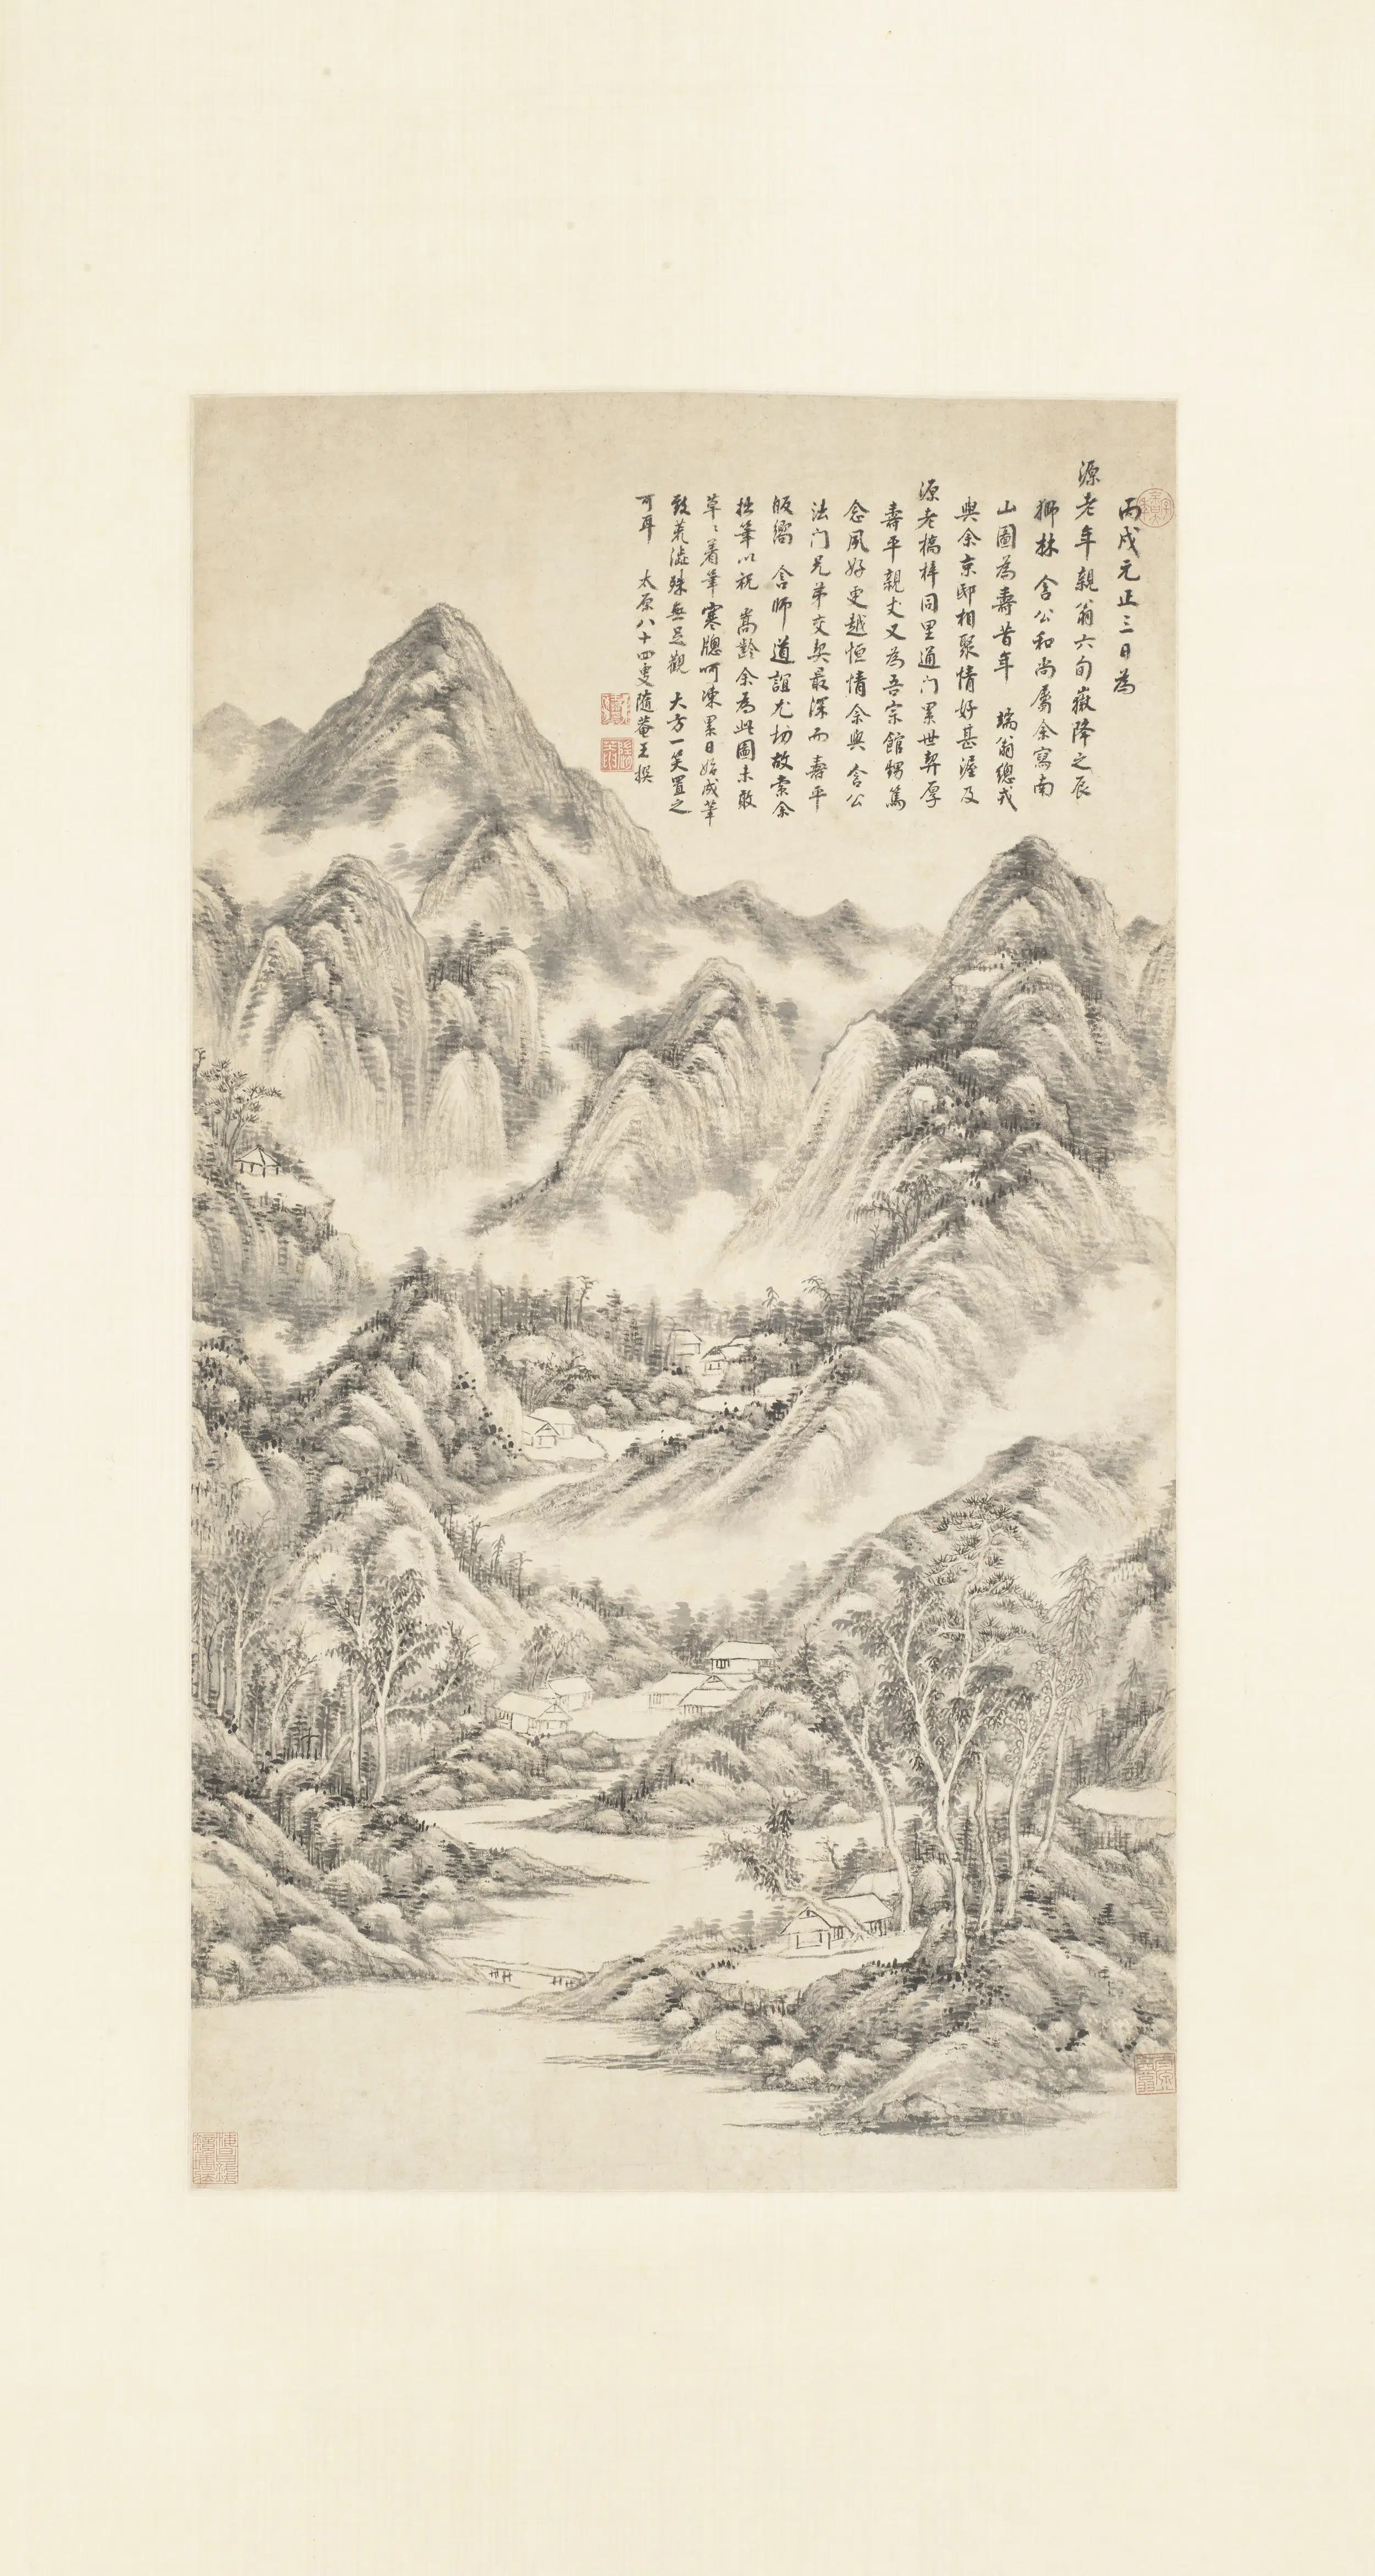 丙戌元正三日為
源老年親翁六旬嶽降之辰
獅林 含公和尚屬余寫南
山圖為壽昔年 瑞翁總戎
與余京邸相聚情好甚渥及
源老橋梓同里通门累世契厚
壽平親丈又為吾宗館甥篤
念夙好更越恒情余與 含公
法门兄弟交契最深而 壽平
皈嚮 含師道誼尤切故索余
拙筆以祝 嵩齡余為此圖未敢
草〻着筆寒牕呵凍累日始成筆
致荒澁殊無足觀 大方一笑置之
可耳 太原八十四叟隨菴王撰